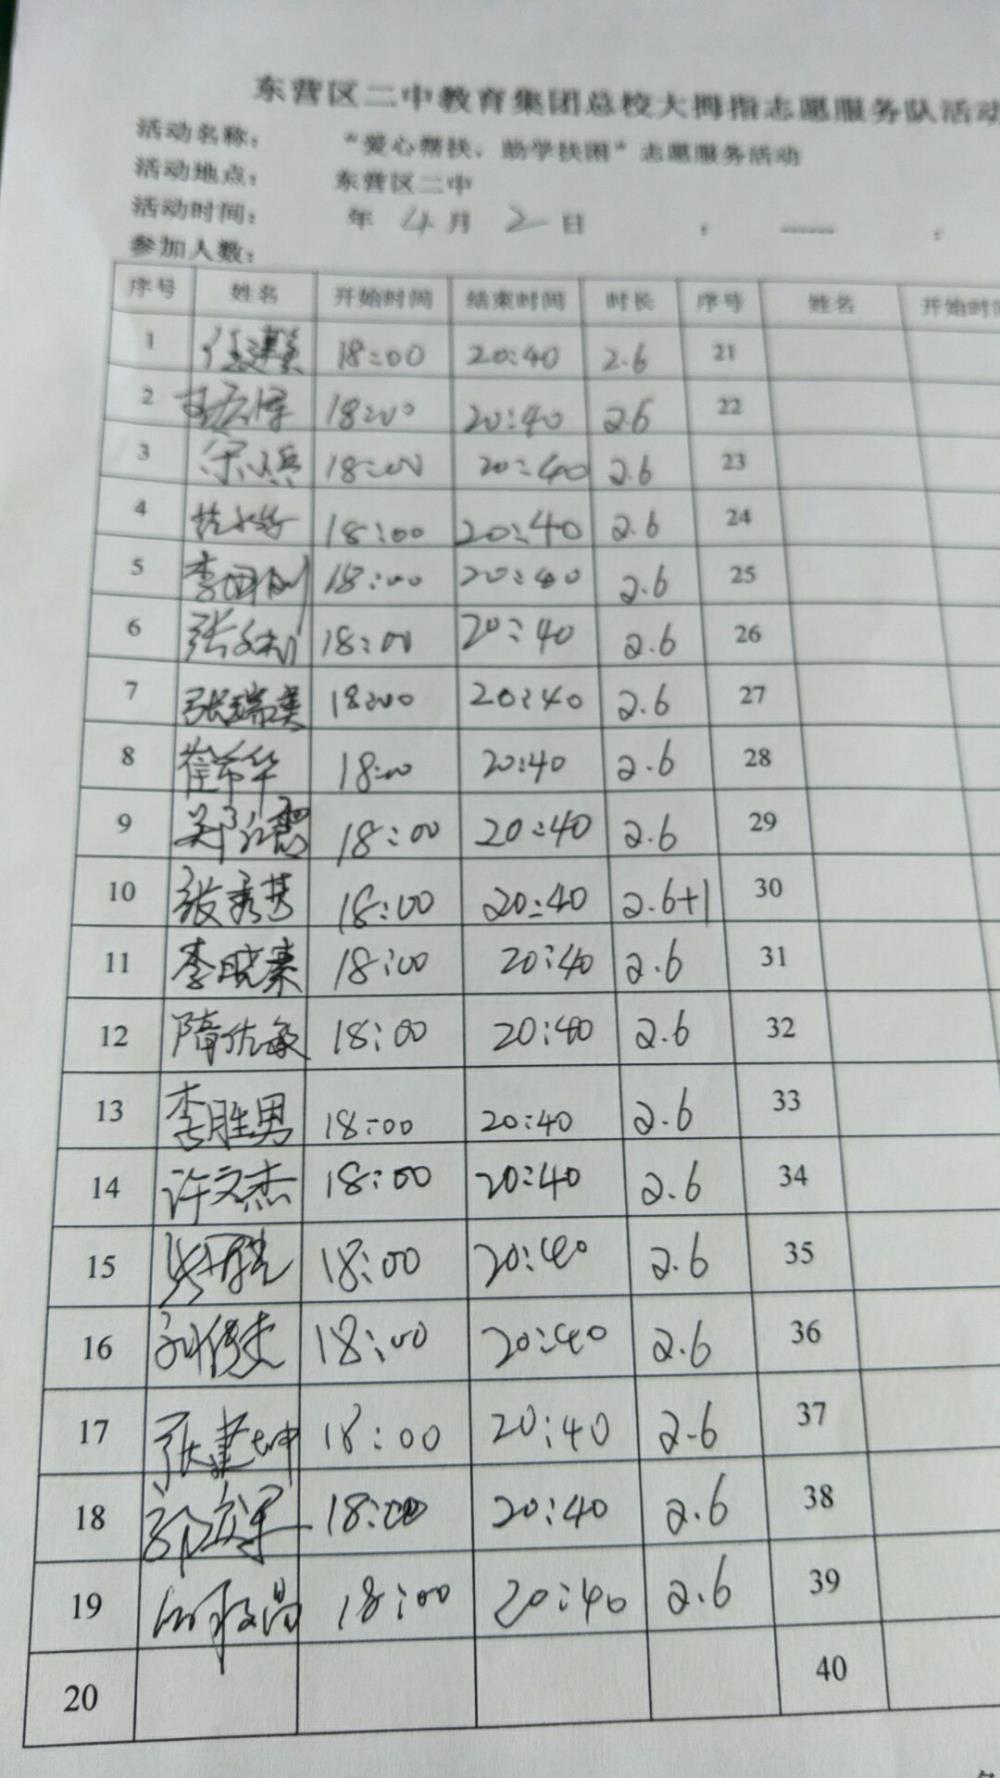 东营区二中教育集团总校大拇指志愿服务队活动
活动名称： “爱心帮扶、助学扶困”志愿服务活动
活动地点： 东营区二中
活动时间： 年 4 月 2 日 ： —— ：
参加人数：
序号 姓名 开始时间 结束时间 时长 序号 姓名 开始时间
1 18:00 20:40 2.6 21
2 18:00 20:40 2.6 22
3 18:00 20:40 2.6 23
4 18:00 20:40 2.6 24
5 18:00 20:40 2.6 25
6 18:00 20:40 2.6 26
7 张瑞美 18:00 20:40 2.6 27
8 崔希华 18:00 20:40 2.6 28
9 18:00 20:40 2.6 29
10 张秀芳 18:00 20:40 2.6+1 30
11 李晓蓁 18:00 20:40 2.6 31
12 隋佐敏 18:00 20:40 2.6 32
13 李胜男 18:00 20:40 2.6 33
14 许文杰 18:00 20:40 2.6 34
15 18:00 20:40 2.6 35
16 18:00 20:40 2.6 36
17 张建坤 18:00 20:40 2.6 37
18 18:00 20:40 2.6 38
19 18:00 20:40 2.6 39
20 40